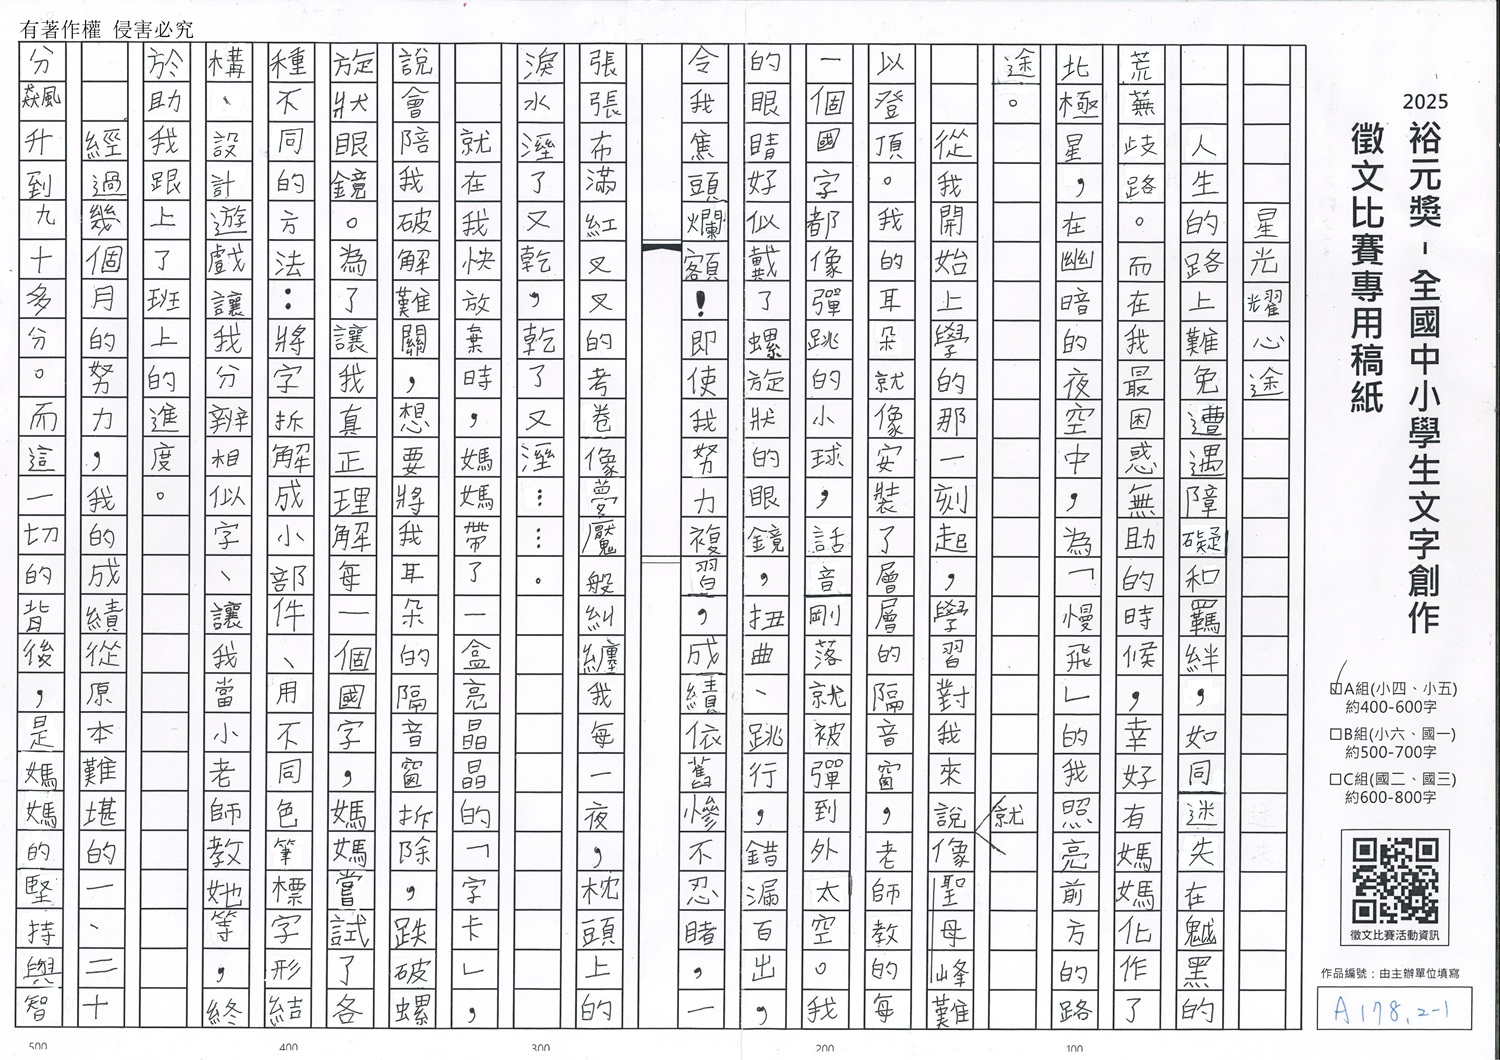 有著作權 侵害必究
2025 裕元獎-全國中小學生文字創作
徵文比賽專用稿紙
☑A組(小四、小五)
約400-600字
□B組(小六、國一)
約500-700字
□C組(國二、國三)
約600-800字
徵文比賽活動資訊
作品編號:由主辦單位填寫
A178.2-1
星光耀心途
人生的路上難免遭遇障礙和羈絆,如同迷失在魆黑的
荒蕪歧路。而在我最困惑無助的時候,幸好有媽媽化作了
北極星,在幽暗的夜空中,為「慢飛」的我照亮前方的路
途。
從我開始上學的那一刻起,學習對我來說就像聖母峰難
以登頂。我的耳朵就像安裝了層層的隔音窗,老師教的每
一個國字都像彈跳的小球,話音剛落就被彈到外太空。我
的眼睛好似戴了螺旋狀的眼鏡,扭曲、跳行,錯漏百出,
令我焦頭爛額!即使我努力複習,成績依舊慘不忍睹,一
張張布滿紅叉叉的考卷像夢魘般糾纏我每一夜,枕頭上的
淚水溼了又乾,乾了又溼……。
就在我快放棄時,媽媽帶了一盒亮晶晶的「字卡」,
說會陪我破解難關,想要將我耳朵的隔音窗拆除,跌破螺
旋狀眼鏡。為了讓我真正理解每一個國字,媽媽嘗試了各
種不同的方法:將字拆解成小部件、用不同色筆標字形結
構、設計遊戲讓我分辨相似字、讓我當小老師教她等,終
於助我跟上了班上的進度。
經過幾個月的努力,我的成績從原本難堪的一、二十
分飆升到九十多分。而這一切的背後,是媽媽的堅持與智
100
200
300
400
500